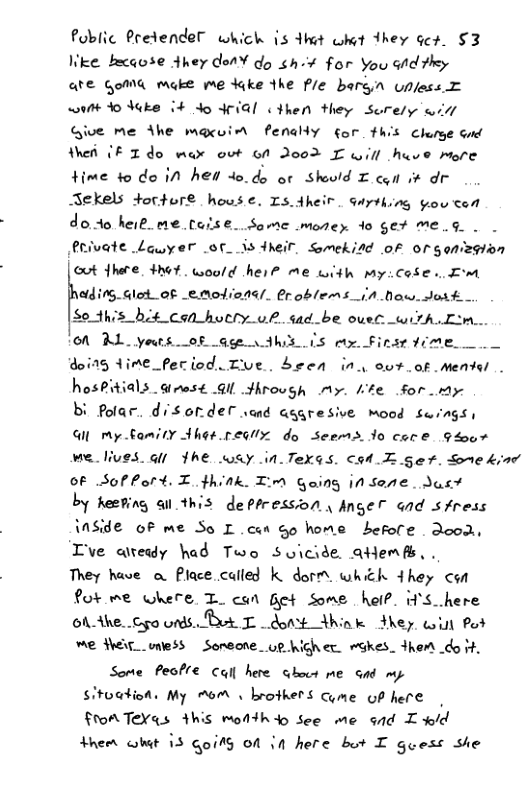 Public Pretender which is that what they act. 53
like because they don't do shit for you and they
are gonna make me take the Ple bargin unless I
want to take it to trial, then they surely will
give me the maxuim Penalty for this charge and
then if I do max out on 2002 I will have more
time to do in hell to do or should I call it dr
Jekels torture house. Is their anything you can
do to help me raise some money to get me a
Private Lawyer or is their somekind of organization
out there that would help me with my case. I'm
holding alot of emotional Problems in now Just
so this bit can hurry up and be over with. I'm
on 21 years of age, this is my first time
doing time Period. I've been in, out of Mental
hospitials almost all through my life for my
bi Polar disorder, and aggresive mood swings,
all my family that really do seems to care about
me lives all the way in Texas. can I get some kind
of Support. I think I'm going insane Just
by keeping all this deppression, Anger and stress
inside of me so I can go home before 2002.
I've already had Two suicide attempts..
They have a Place called K dorm which they can
Put me where I can get some help. it's here
on the grounds. But I don't think they will Put
me their unless someone up higher makes them do it.
Some People call here about me and my
situation. My mom, brothers came up here
from Texas this month to see me and I told
them what is going on in here but I guess she